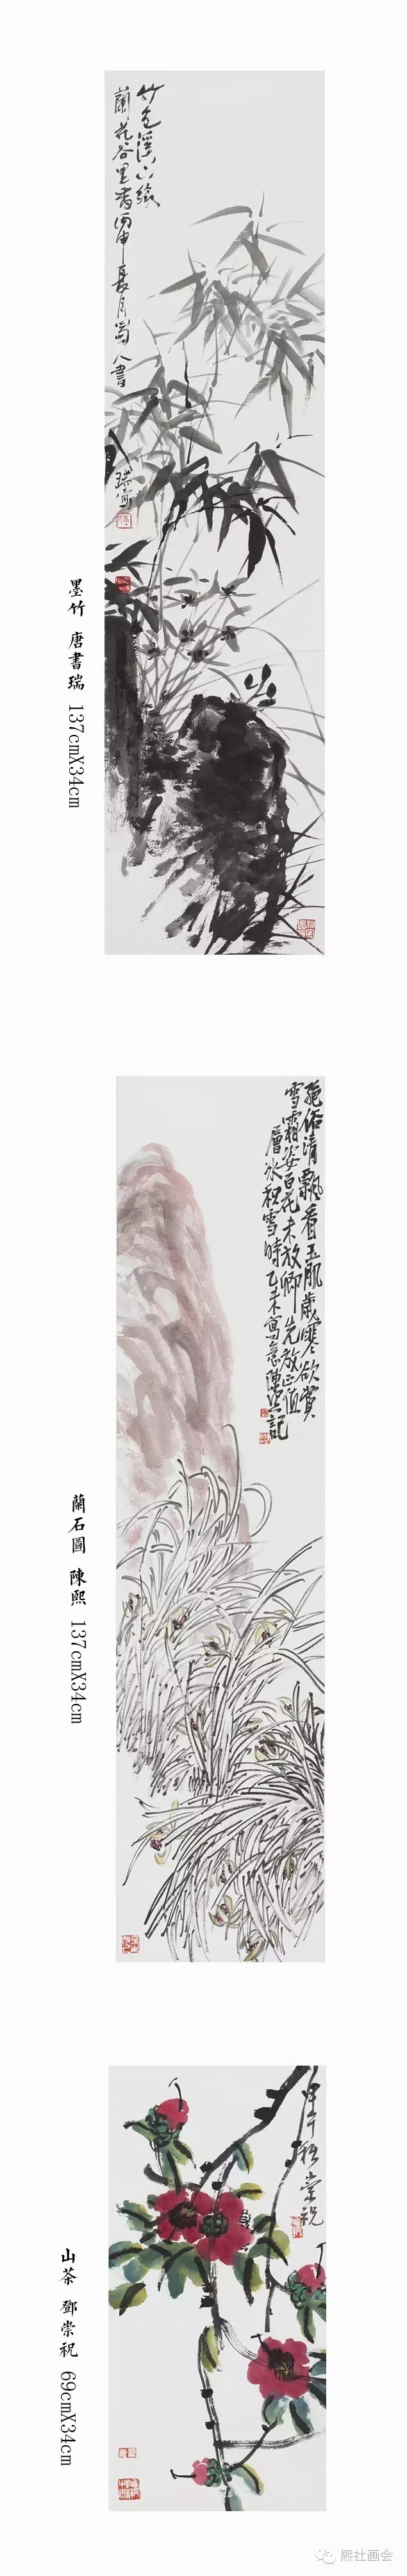 竹色溪山綠
蘭花谷里香丙申夏月蜀人書
瑞寫
墨竹 唐書瑞 137cmX34cm
清飄看玉肌歲寒欲賞
雪霜姿百花未放卿先放正值
層冰积雪時乙未寫意陳熙記
蘭石圖 陳熙 137cmX34cm
崇祝
山茶 鄧崇祝 69cmX34cm
熙社画会